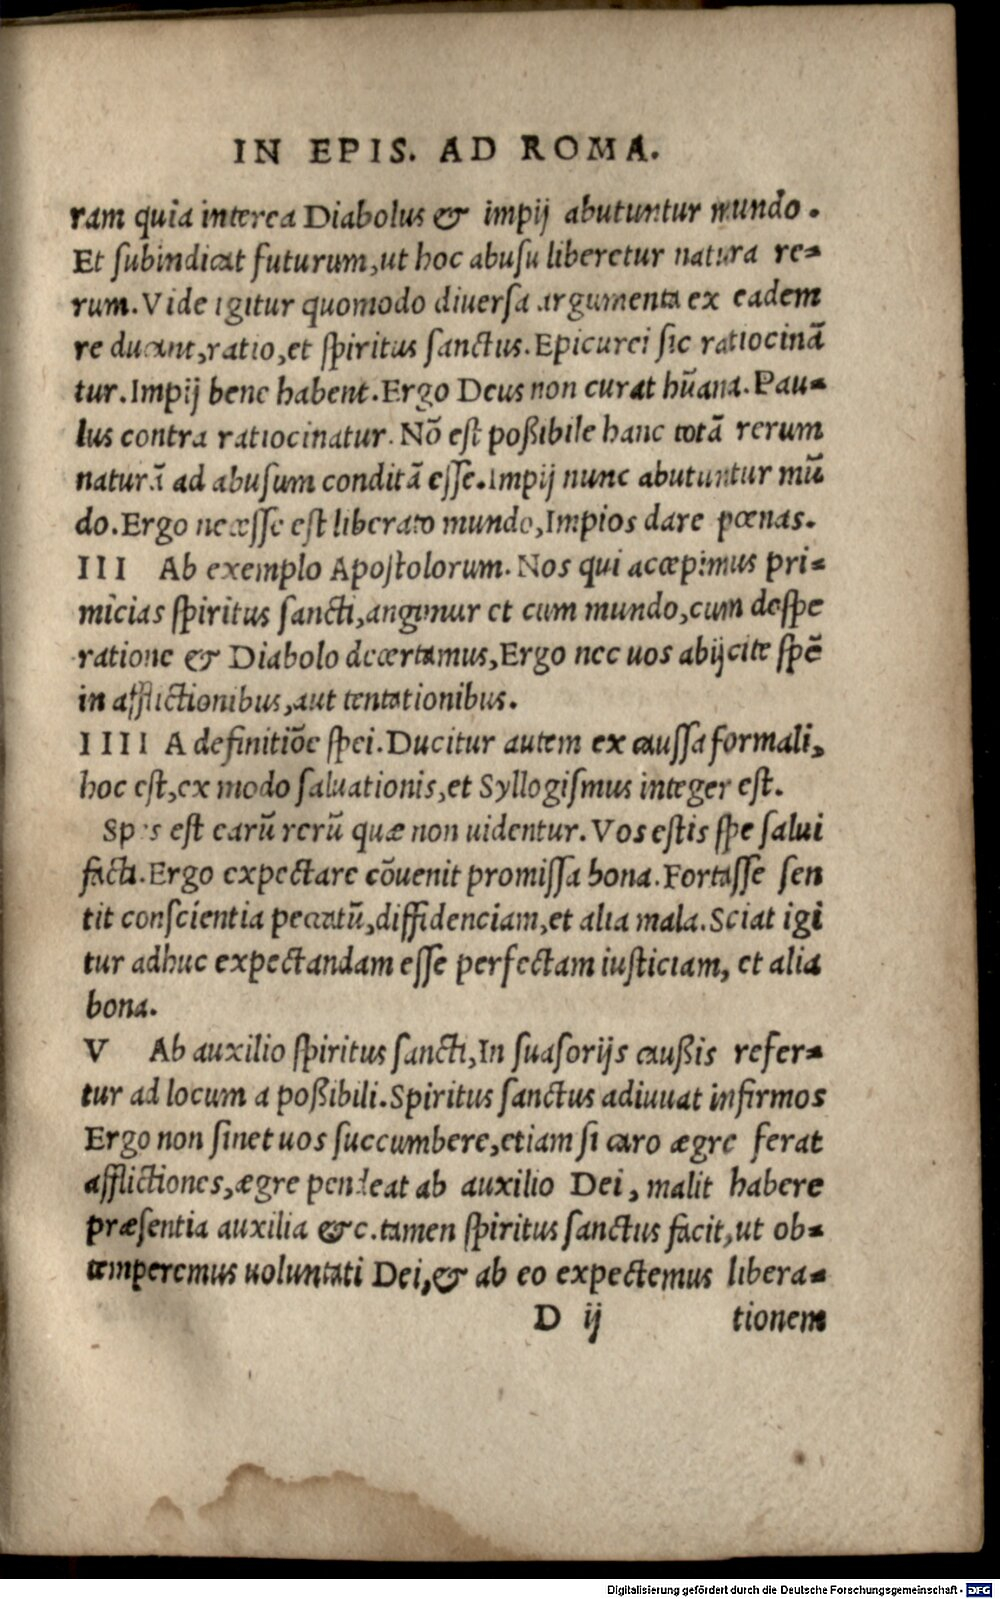 IN EPIS. AD ROMA.
ram quia interea Diabolus & impij abutuntur mundo.
Et subindicat futurum, ut hoc abusu liberetur natura re-
rum. Vide igitur quomodo diversa argumenta ex eadem
re ducant, ratio, et spiritus sanctus. Epicurei sic ratiocinā
tur. Impij bene habent. Ergo Deus non curat hūana. Pau-
lus contra ratiocinatur. Nō est poßibile hanc totā rerum
naturā ad abusum conditā esse. Impij nunc abutuntur mū
do. Ergo necesse est liberato mundo, Impios dare pœnas.
III Ab exemplo Apostolorum. Nos qui accepimus pri-
micias spiritus sancti, angimur et cum mundo, cum despe
ratione & Diabolo decertamus, Ergo nec uos abijcite spē
in afflictionibus, aut tentationibus.
IIII A definitiōe spei. Ducitur autem ex caussa formali,
hoc est, ex modo saluationis, et Syllogismus integer est.
Spes est earū rerū quæ non uidentur. Vos estis spe salui
facti. Ergo expectare cōuenit promissa bona. Fortasse sen
tit conscientia peccatū, diffidenciam, et alia mala. Sciat igi
tur adhuc expectandam esse perfectam iusticiam, et alia
bona.
V Ab auxilio spiritus sancti, In suasorijs caußis refer-
tur ad locum a poßibili. Spiritus sanctus adiuuat infirmos
Ergo non sinet uos succumbere, etiam si caro ægre ferat
afflictiones, ægre pendeat ab auxilio Dei, malit habere
præsentia auxilia &c. tamen spiritus sanctus facit, ut ob-
temperemus uoluntati Dei, & ab eo expectemus libera-
D ij tionem
Digitalisierung gefördert durch die Deutsche Forschungsgemeinschaft - DFG